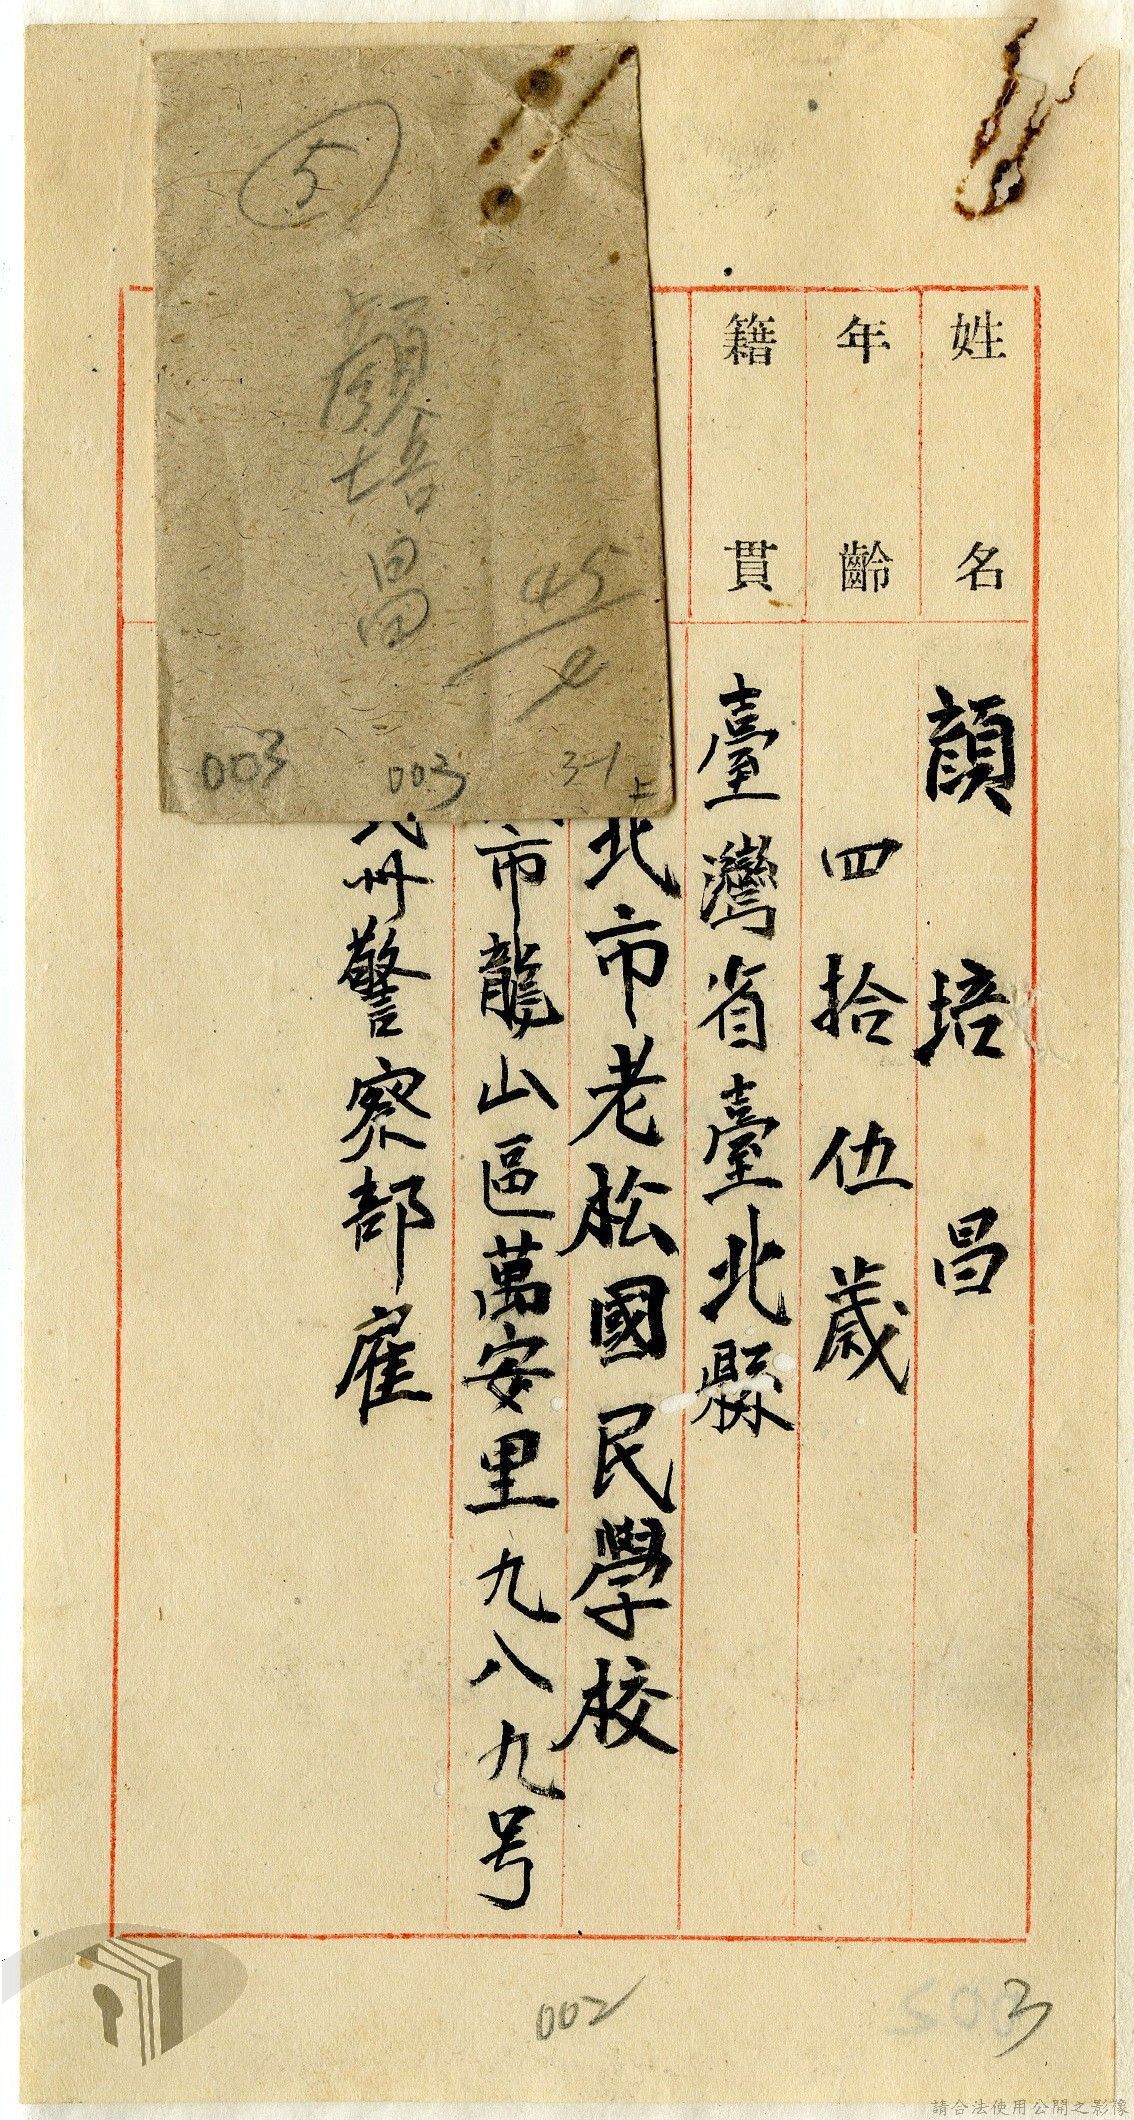 姓名 顏培昌
年齡 四拾伍歲
籍貫 臺灣省臺北縣
北市老松國民學校
市龍山區萬安里九八九号
州警察部雇
5
顏培昌
45
003
003
3-1
上
002
3
請合法使用公開之影像